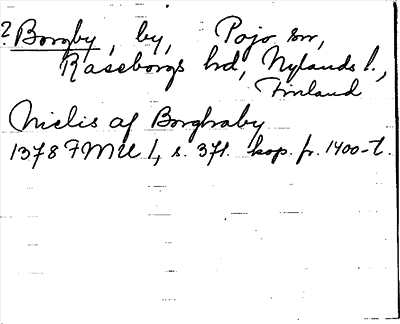 ? Borgby, by, Pojo sn,
Raseborgs hd, Nylands l.,
Finland
Niclis af Borghaby
1378 FMU 1, s. 371. kop. fr. 1400-t.